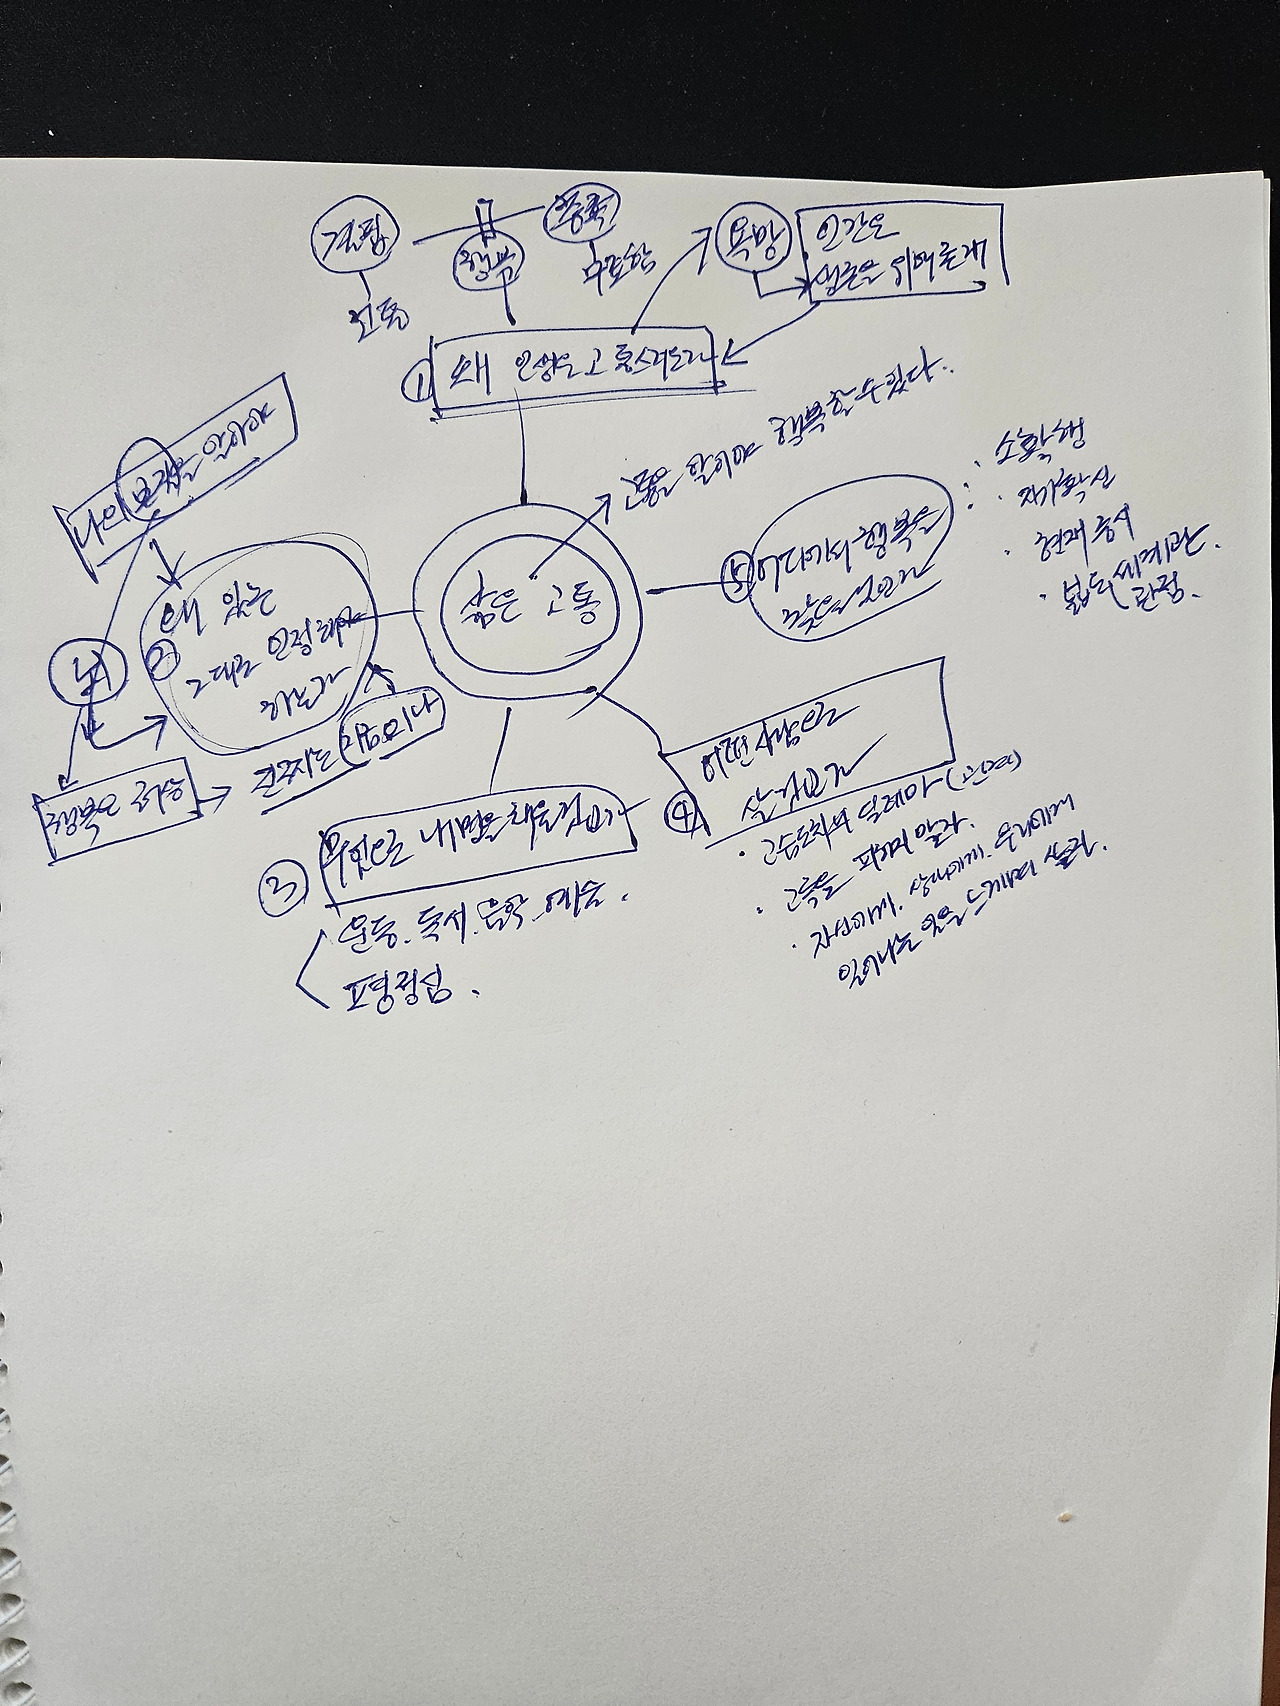 결핍
행복
충족
고통
무료함
욕망
인간은
① 왜 인생은 고통스러운가
고통을 알아야 행복할 수 있다..
삶은 고통
나의 을 알아야
② 왜 있는
그대로 인정해야
하는가
뇌
행복은
③ 무엇으로 내면을 채울 것인가
운동. 독서. 음악. 예술.
평정심.
④ 어떤 사람으로
살 것인가
· 고슴도치의 딜레마 (관계)
· 고독을 피하지 말자.
· 자신에게. 상대에게. 우리에게
일어나는 일을 느끼며 살라.
⑤ 어디에서 행복을
찾을 것인가
· 소확행
· 자기확신
· 현재 중시
· 넓은 세계관
관점.